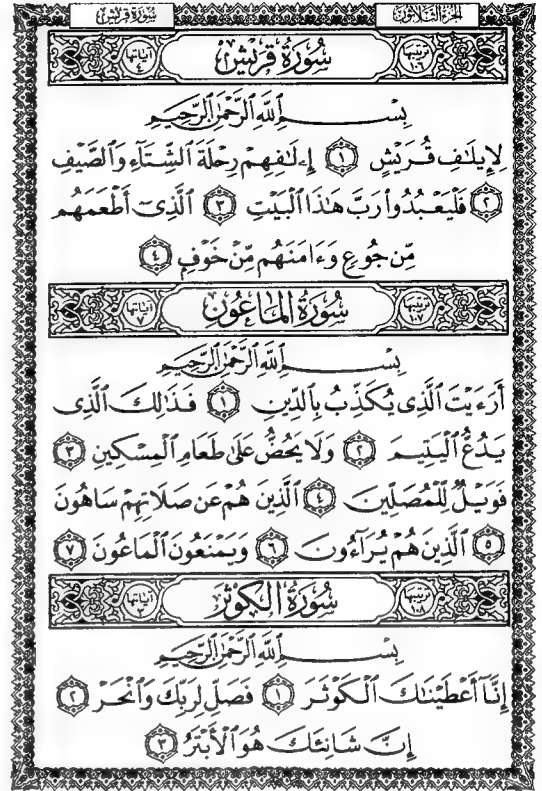 سورة قريش الجزء الثلاثون
ترتيبها ١٠٦ سُورَةُ قُرَيْشٍ آياتها ٤
بِسْمِ ٱللَّهِ ٱلرَّحْمَٰنِ ٱلرَّحِيمِ
لِإِيلَٰفِ قُرَيْشٍ ١ إِۦلَٰفِهِمْ رِحْلَةَ ٱلشِّتَآءِ وَٱلصَّيْفِ
٢ فَلْيَعْبُدُوا۟ رَبَّ هَٰذَا ٱلْبَيْتِ ٣ ٱلَّذِىٓ أَطْعَمَهُم
مِّن جُوعٍ وَءَامَنَهُم مِّنْ خَوْفٍۭ ٤
ترتيبها ١٠٧ سُورَةُ المَاعُونِ آياتها ٧
بِسْمِ ٱللَّهِ ٱلرَّحْمَٰنِ ٱلرَّحِيمِ
أَرَءَيْتَ ٱلَّذِى يُكَذِّبُ بِٱلدِّينِ ١ فَذَٰلِكَ ٱلَّذِى
يَدُعُّ ٱلْيَتِيمَ ٢ وَلَا يَحُضُّ عَلَىٰ طَعَامِ ٱلْمِسْكِينِ ٣
فَوَيْلٌ لِّلْمُصَلِّينَ ٤ ٱلَّذِينَ هُمْ عَن صَلَاتِهِمْ سَاهُونَ
٥ ٱلَّذِينَ هُمْ يُرَآءُونَ ٦ وَيَمْنَعُونَ ٱلْمَاعُونَ ٧
ترتيبها ١٠٨ سُورَةُ الكَوْثَرِ آياتها ٣
بِسْمِ ٱللَّهِ ٱلرَّحْمَٰنِ ٱلرَّحِيمِ
إِنَّآ أَعْطَيْنَٰكَ ٱلْكَوْثَرَ ١ فَصَلِّ لِرَبِّكَ وَٱنْحَرْ ٢
إِنَّ شَانِئَكَ هُوَ ٱلْأَبْتَرُ ٣